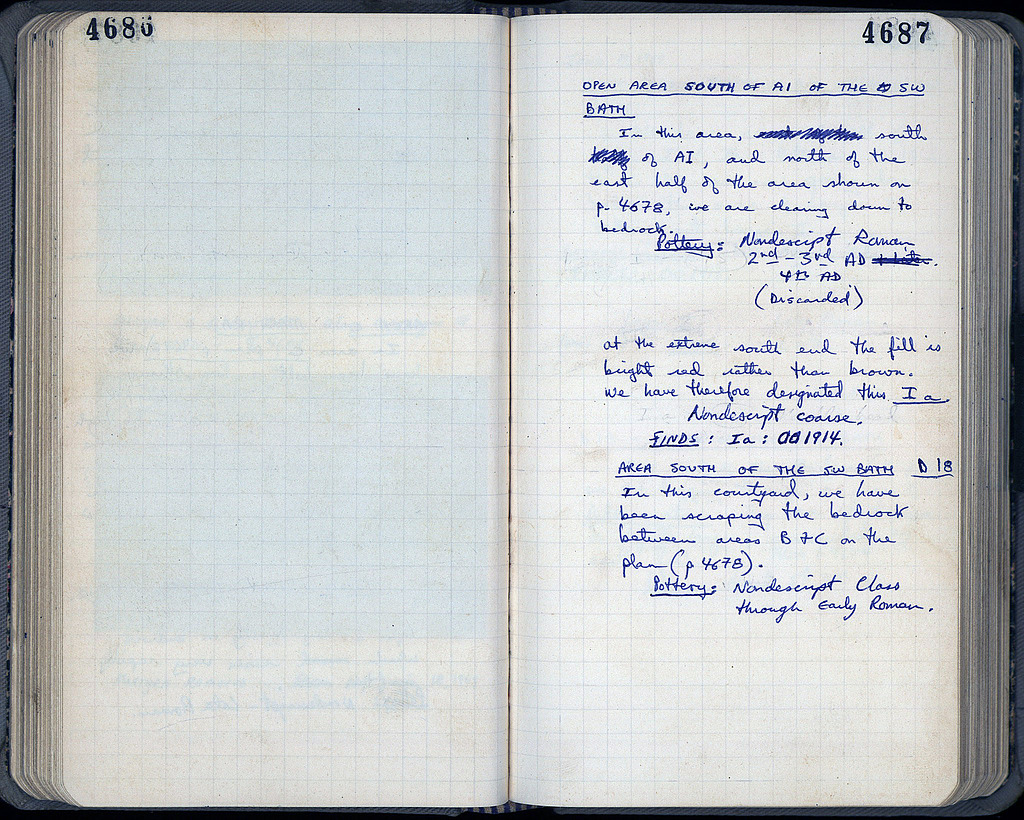 4686
4687
OPEN AREA SOUTH OF AI OF THE SW
BATH
In this area, south
of AI, and north of the
east half of the area shown on
p. 4678, we are clearing down to
bedrock.
Pottery: Nondescript Roman
2nd - 3rd AD
4th AD
(Discarded)
at the extreme south end the fill is
bright red rather than brown.
we have therefore designated this I a
Nondescript coarse.
FINDS: Ia: 1914.
AREA SOUTH OF THE SW BATH D 18
In this courtyard, we have
been scraping the bedrock
between areas B & C on the
plan (p 4678).
Pottery: Nondescript Class
through Early Roman.